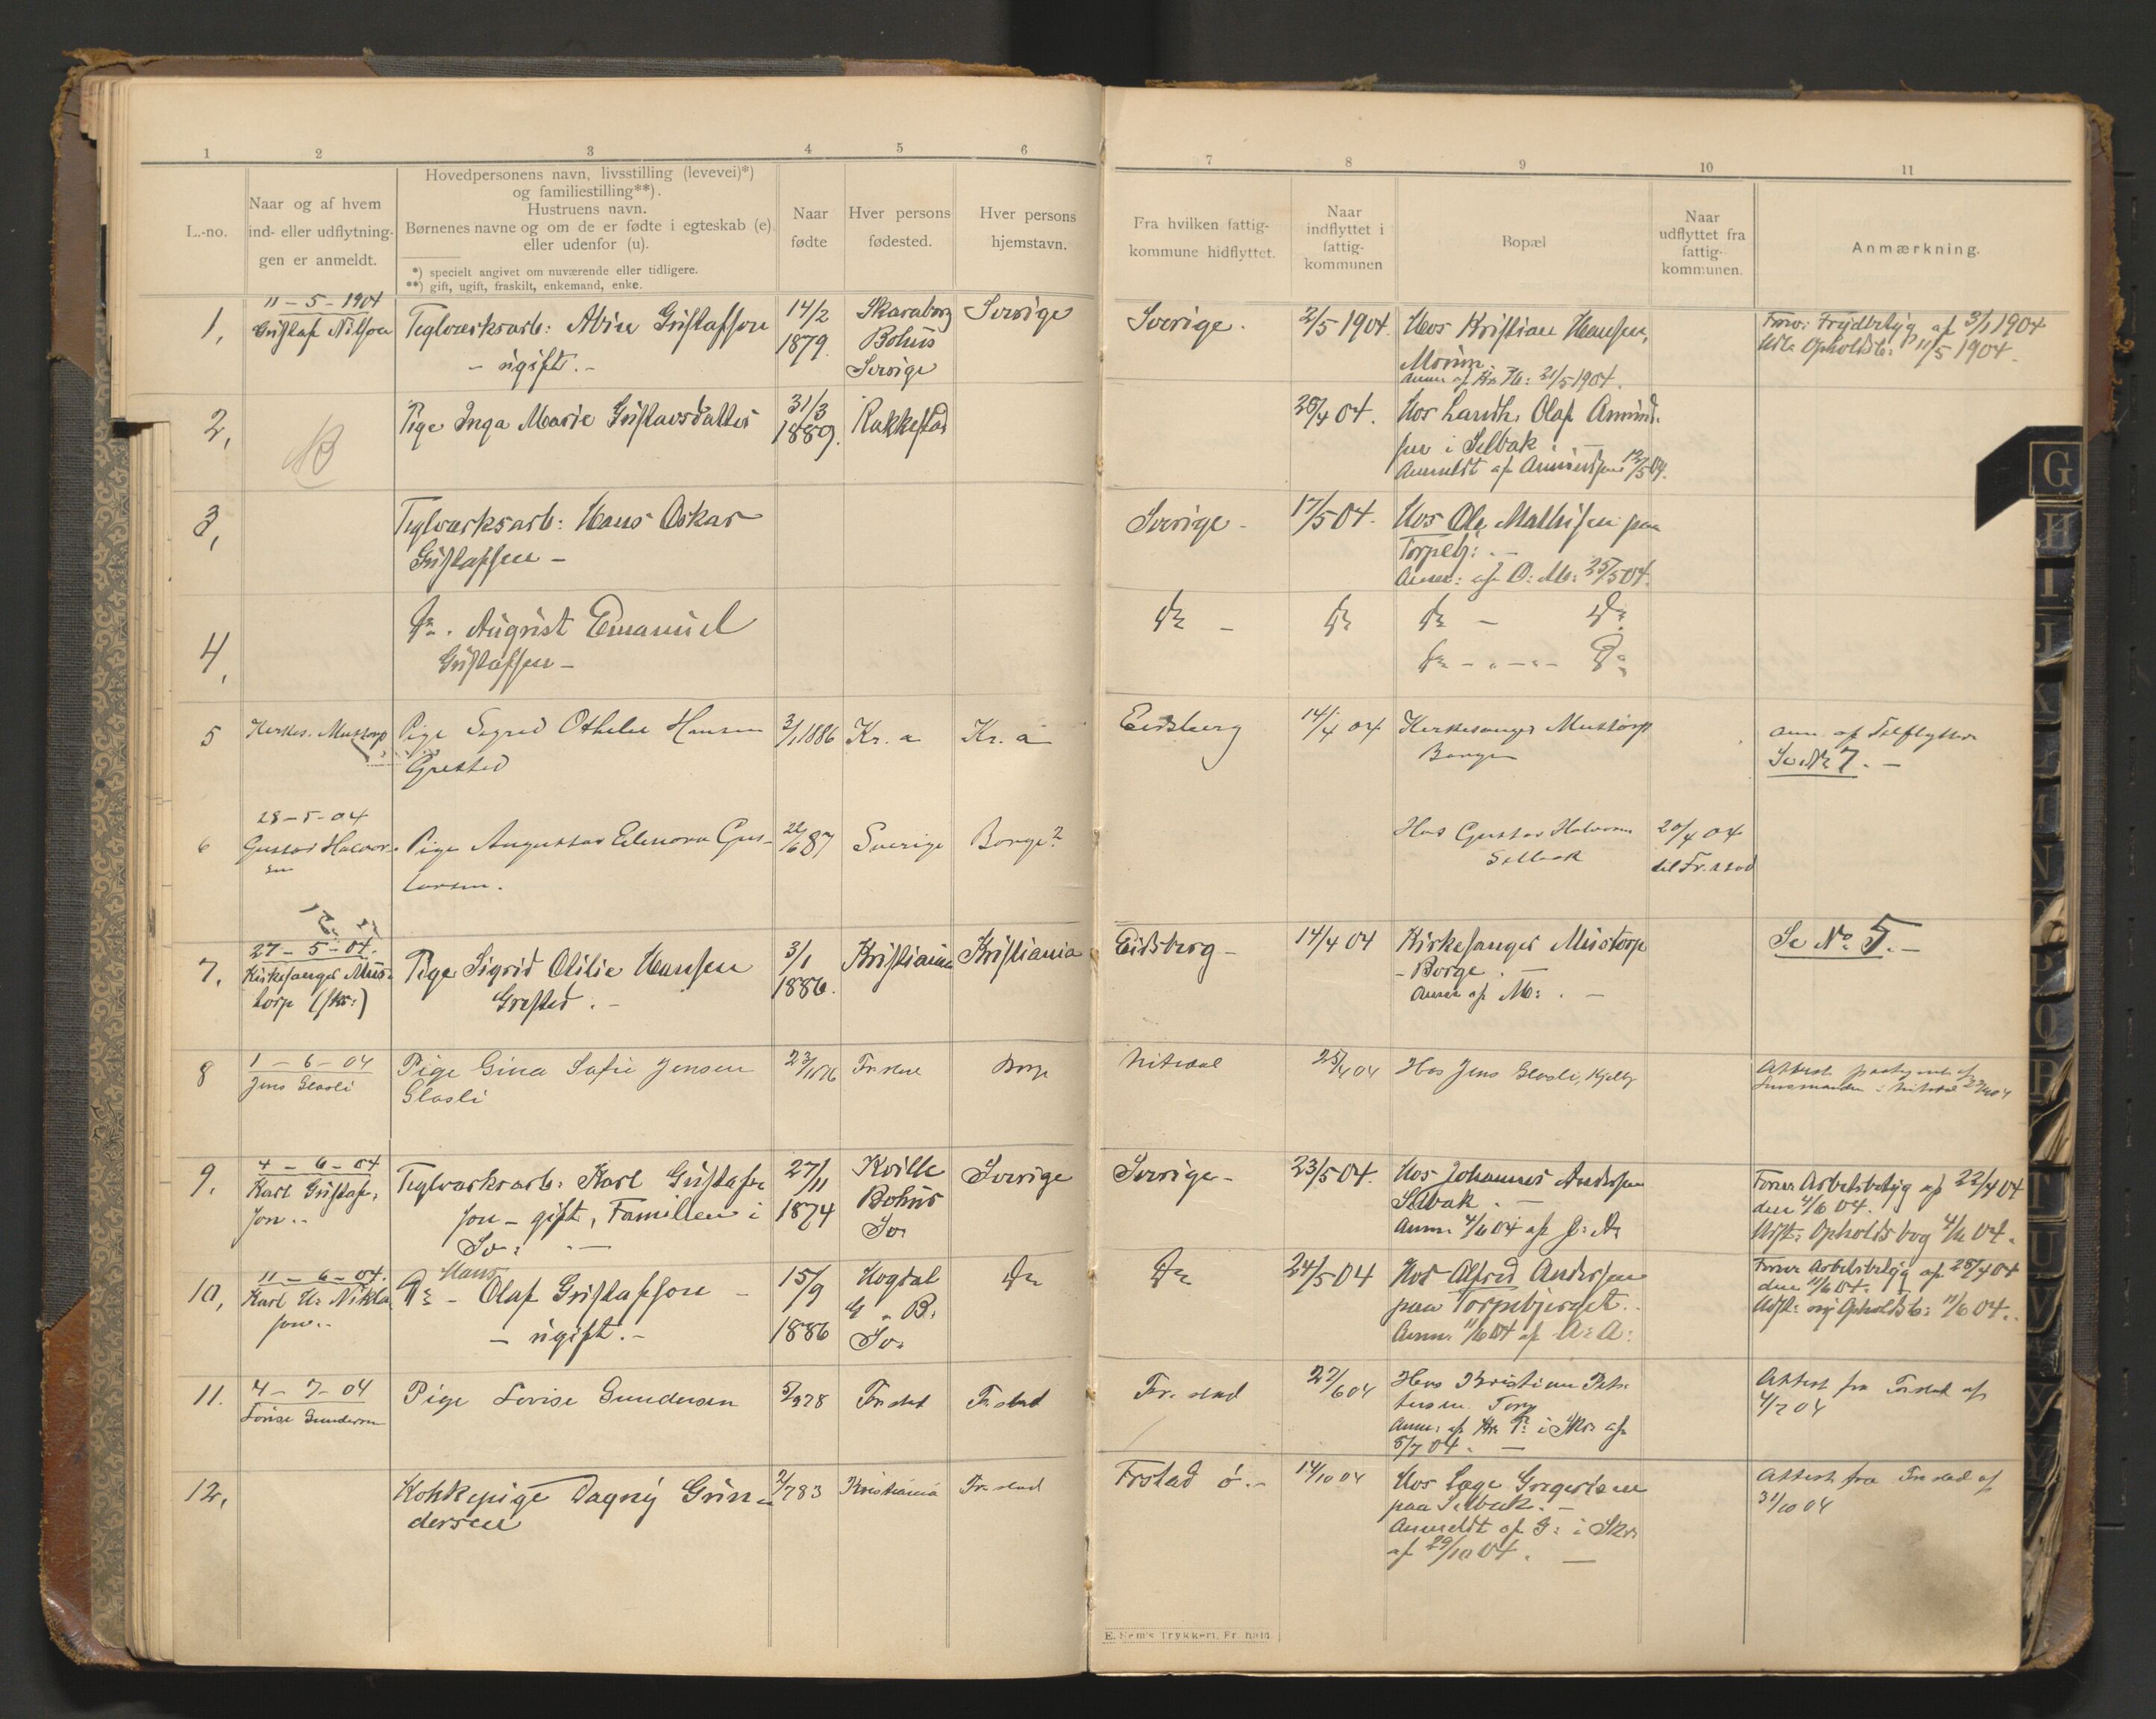 1 2 3 4 5 6 7 8 9 10 11
L.-no.
Naar og af hvem
ind- eller udflytning-
gen er anmeldt.
Hovedpersonens navn, livsstilling (levevei)*)
og familiestilling**).
Hustruens navn.
Børnenes navne og om de er fødte i egteskab (e)
eller udenfor (u).
*) specielt angivet om nuværende eller tidligere.
**) gift, ugift, fraskilt, enkemand, enke.
Naar
fødte
Hver persons
fødested.
Hver persons
hjemstavn.
Fra hvilken fattig-
kommune hidflyttet.
Naar
indflyttet i
fattig-
kommunen
Bopæl
Naar
udflyttet fra
fattig-
kommunen.
Anmærkning.
1,
11-5-1904
Gustaf Nilson
Teglværksarb: Gustafson
- ugift. -
14/2
1879.
Skaraborg
Bohus
Sverige
Sverige
Sverige.
2/5 1904.
Hos Kristian Hansen,
Moum
21/5 1904.
3/1 1904
Opholdsb: 11/5 1904.
2,
Pige Inga Marie Gustavsdatter
31/3
1889.
Rakkestad
25/4 04.
Hos Landh. Olaf Amund-
sen i Selbak. -
Anmeldt af Amundsen 12/5 04.
3,
Teglværksarb: Hans Oskar
Gustafsen -
Sverige -
17/5 04.
Hos Ole Mathisen paa
Torpebj: . -
Anm: af O: M: 25/5 04.
4,
Do. August Emanuel
Gustafsen -
Do -
Do
Do - Do
Do - " - " - Do
5
Kirkes. Mustorp
Pige Sigrid Othelie Hansen
Grested
3/1 1886
Kr. a
Kr. a
Eidsberg
14/4 04
Kirkesanger Mustorp
Borge
anm af Tilflytter
Se No 7. -
6
28-5-04
Gustav Halvor-
sen
Pige Augusta Elenora Gus-
tavsen.
87
Sverige
Borge?
Hos Gustav Halvorsen
Selbak
20/4 04
til Fr.stad
7.
27-5-04.
Kirkesanger Mus-
torp (skr:)
Pige Sigrid Otilie Hansen
Grested. -
3/1
1886.
Kristiania
Kristiania
Eidsberg -
14/4 04
Kirkesanger Mustorp
- Borge. -
Anm af M: . -
Se No. 5. -
8
1-6-04
Jens Glosli
Pige Gina Sofie Jensen
Glosli
Fr.stad
Borge
Nitedal
25/4 04
Hos Jens Glosli,
Attest
Lensmanden i Nitedal
9.
4-6-04
Karl Gustaf-
son..
Teglværksarb: Karl Gustaf-
son - gift, Familien i
Sv: -
27/11
1874
Kville
Bohus
Sv.
Sverige
Sverige -
23/5 04.
Hos Johannes Andersen
Selbak. -
Anm. 4/6 04 af J: A:
Forev. Arbeidsbetyg af 22/4 04
den 4/6 04.
Udst: Opholdsbog 4/6 04.
10,
11-6-04.
Karl H. Nikla-
son..
Do - Hans Olaf Gustafsson -
- ugift. -
15/9
1886
Hogdal
G. B.
Sv.
Do
Do
24/5 04
Hos Alfred Andersen
paa Torpebjerget.
Anm. 11/6 04 af A: A:
Forev. Arbeidsbetyg af 25/4 04
den 11/6 04.
Udst: ny Opholdsb: 11/6 04.
11.
4-7-04
Lovise Gundersen
Pige Lovise Gundersen
78
Fr.stad
Fr.stad
Fr.stad
27/6 04
Hos Kristian Pet-
tersen Torp
Anm: af Kr. P: i Skr. af
5/7 04. -
Attest fra Fr.stad af
4/7 04
12,
Kokkepige Dagny Gun-
dersen
83
Kristiania
Fr.stad
Frstad ö. -
14/10 04
Hos Læge Gregersen
paa Selbak. -
Anmeldt af G: i Skr.
af 29/10 04. -
Attest fra Fr.stad af
31/10 04
E. Sem's Trykkeri, Fr.hald.
G
H
I
J
K
L
M
N
O
P
Q
R
T
U
V
X
Y